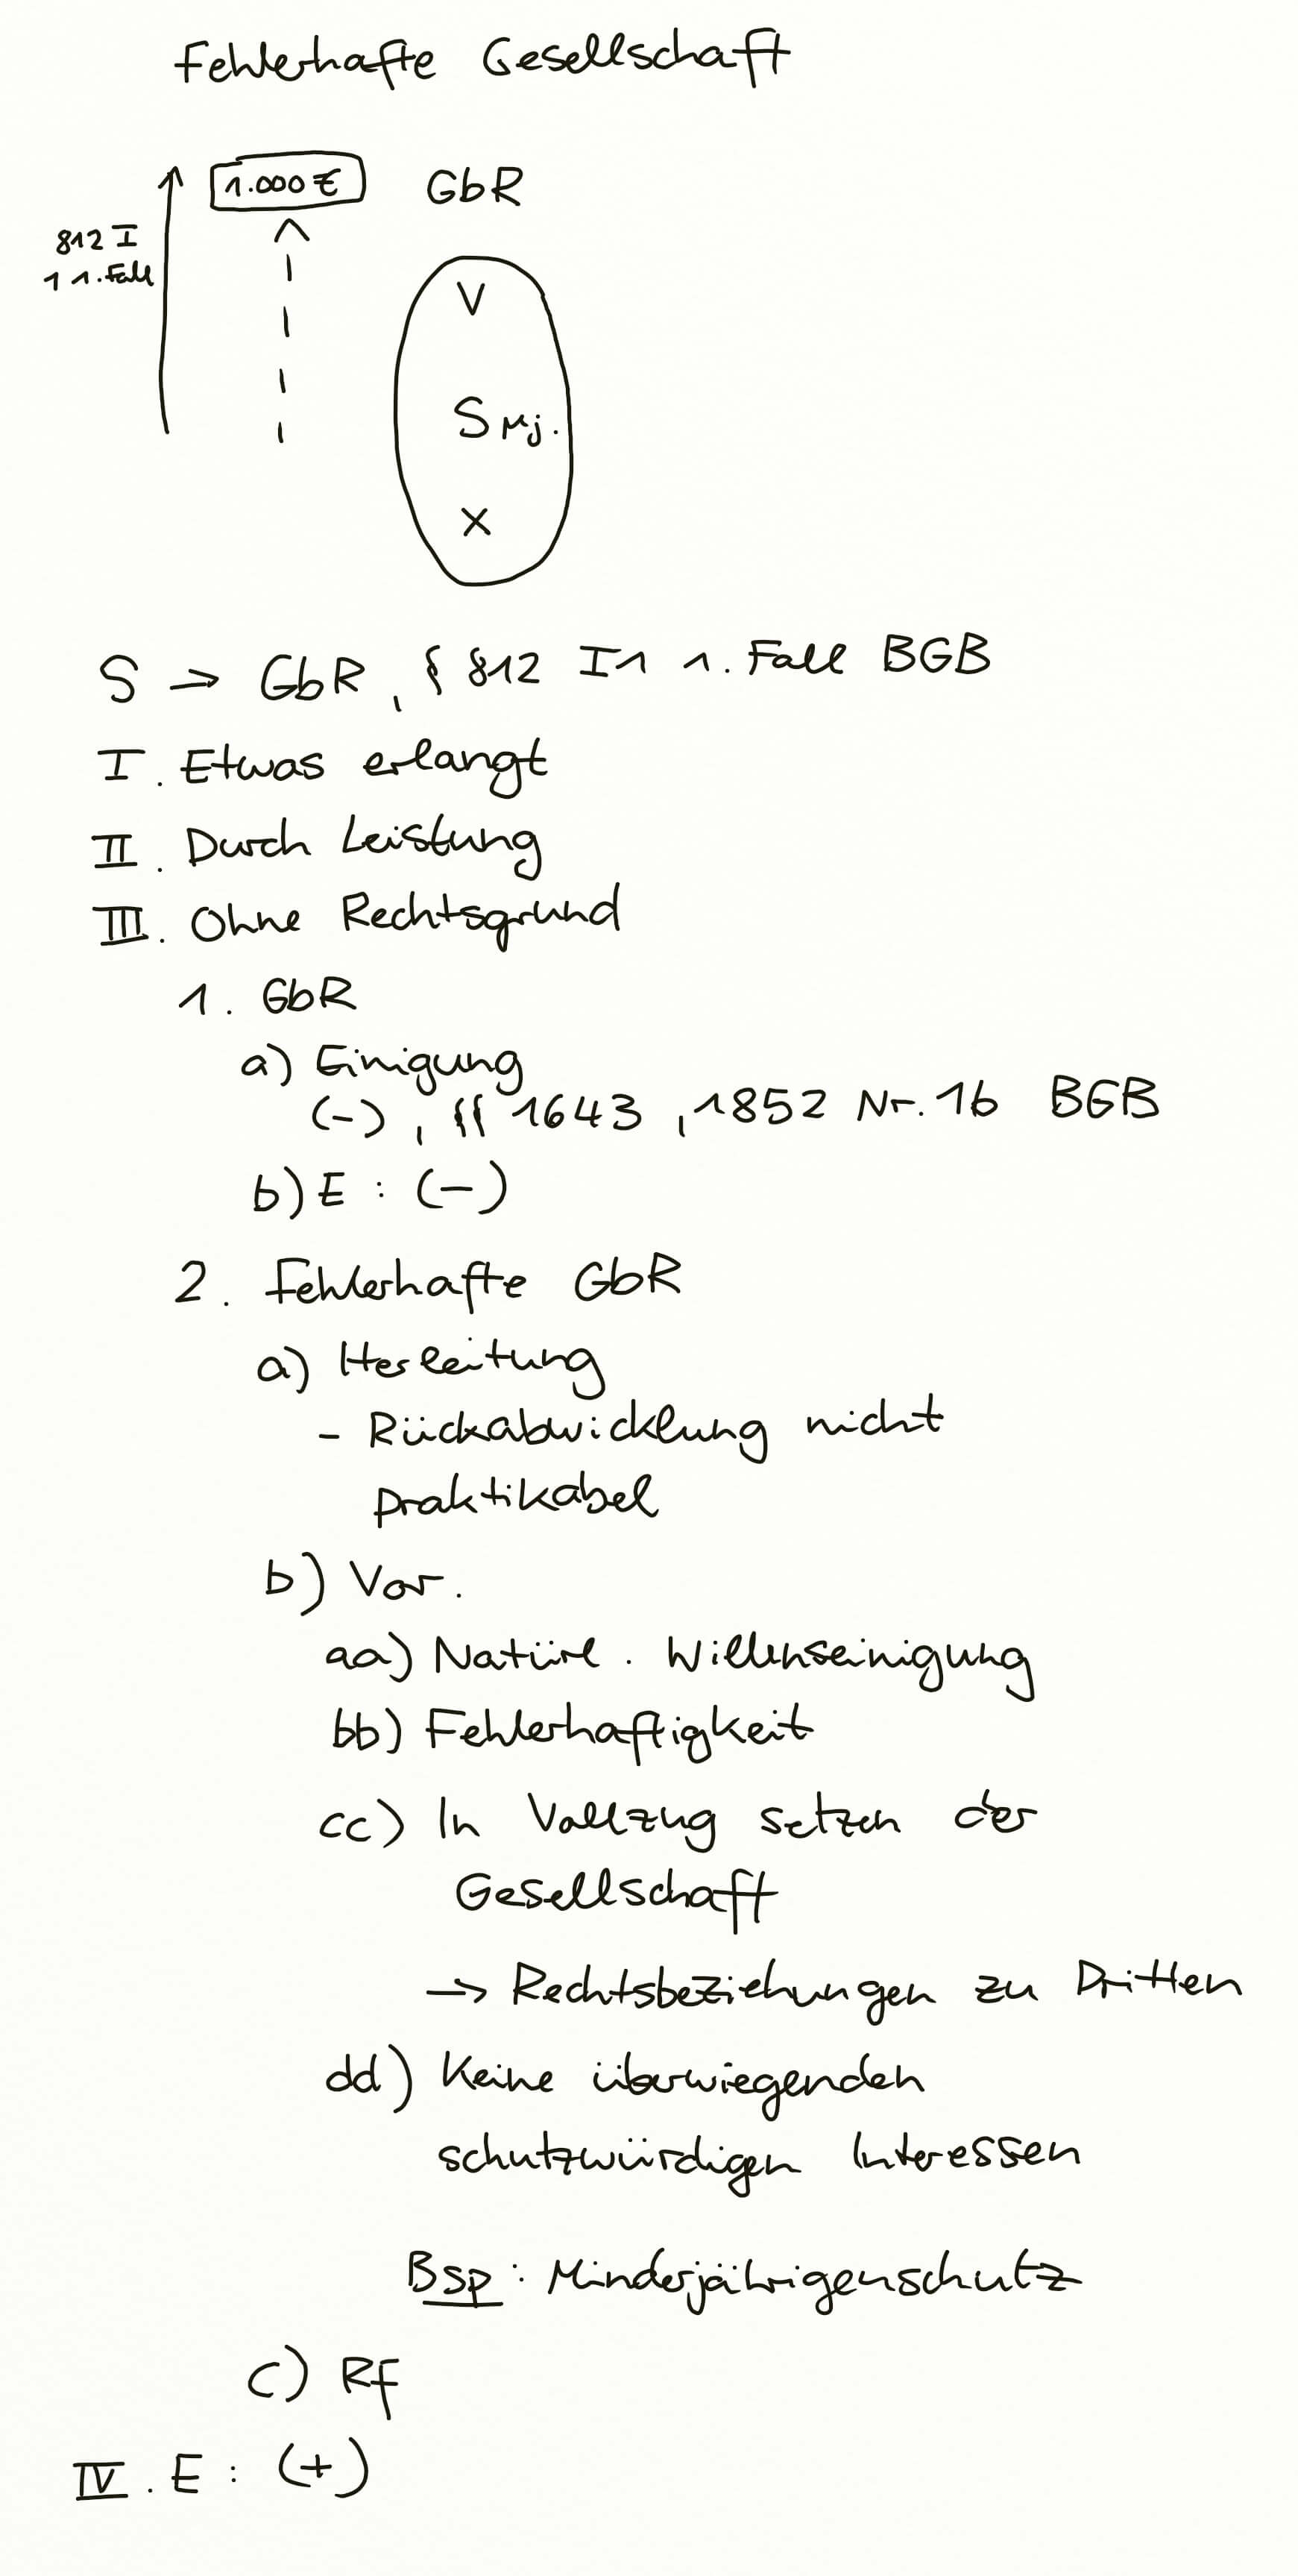 Fehlerhafte Gesellschaft
1.000 € GbR
812 I
1 1. Fall
V
S Mj.
X
S → GbR, § 812 I 1 1. Fall BGB
I. Etwas erlangt
II. Durch Leistung
III. Ohne Rechtsgrund
1. GbR
a) Einigung
(-), §§ 1643, 1852 Nr. 1b BGB
b) E : (-)
2. Fehlerhafte GbR
a) Herleitung
- Rückabwicklung nicht
praktikabel
b) Vor.
aa) Natürl. Willenseinigung
bb) Fehlerhaftigkeit
cc) In Vollzug setzen der
Gesellschaft
→ Rechtsbeziehungen zu Dritten
dd) Keine überwiegenden
schutzwürdigen Interessen
Bsp : Minderjährigenschutz
c) Rf
IV. E : (+)